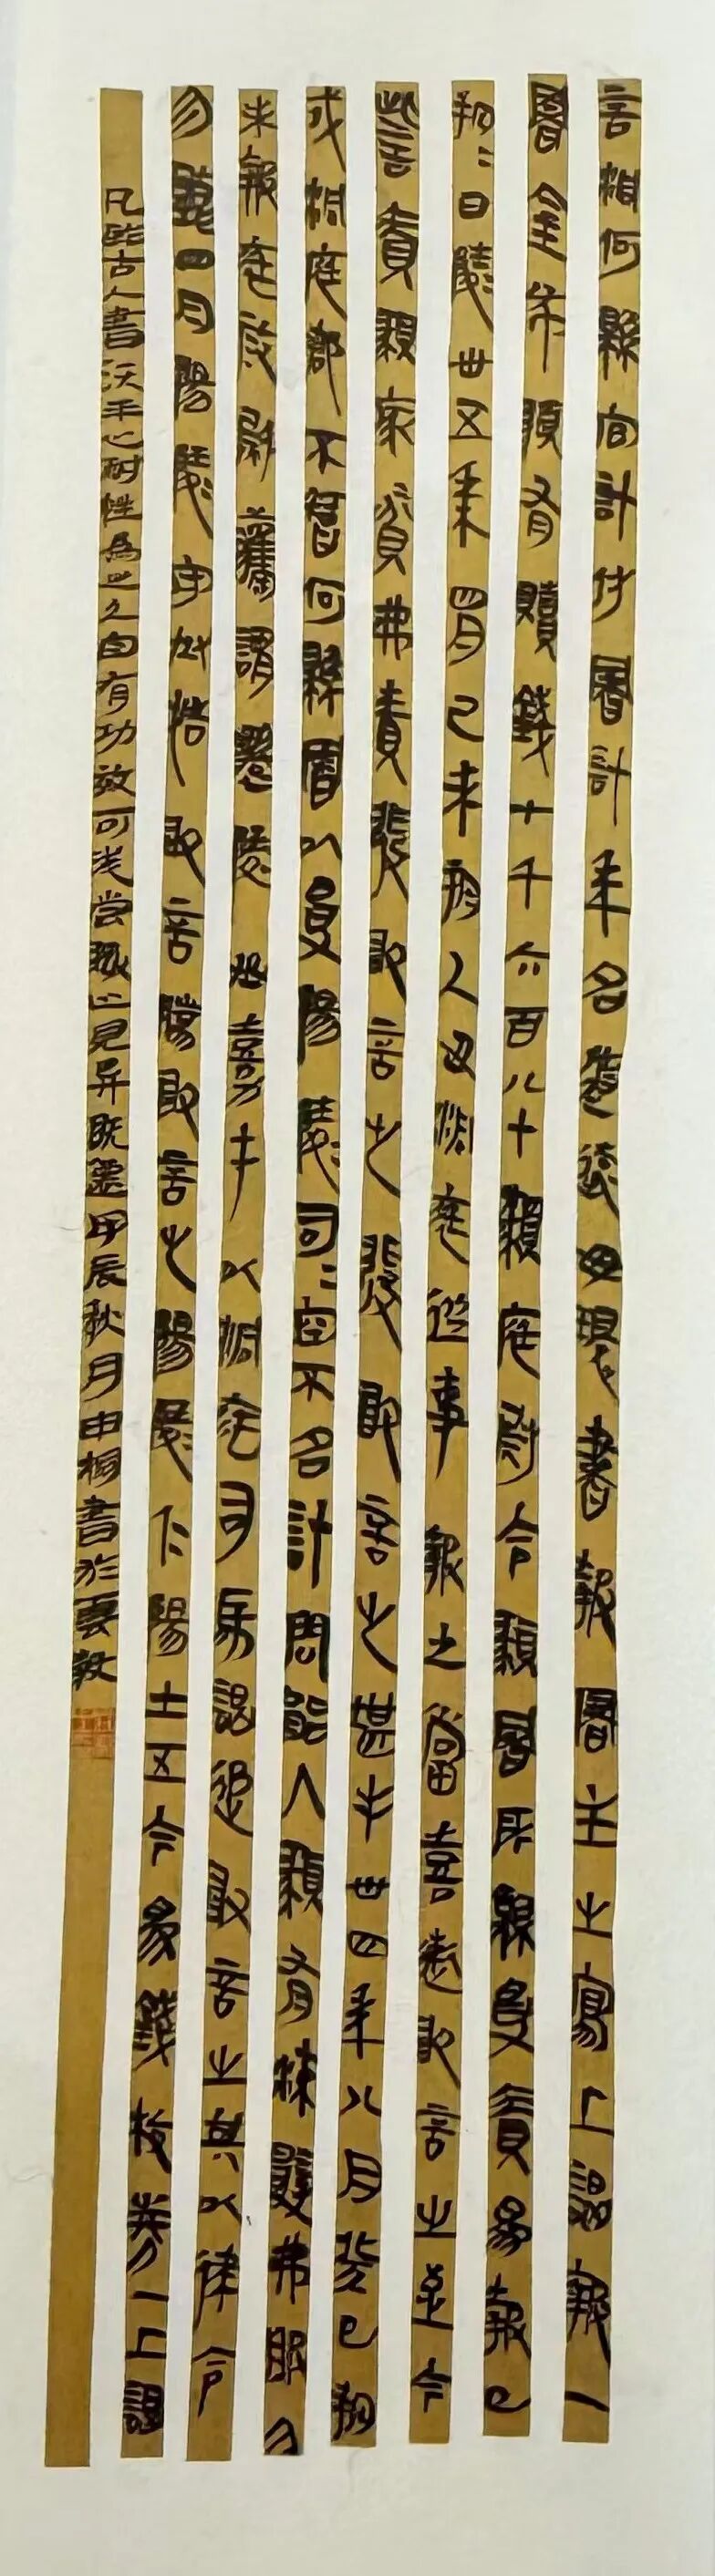 言洞何縣官計付署計年名為後毋環書報署主之寫上謁報一
署金布頯有贖錢十千六百八十頯庭尉令頯署所縣受責易報已
朔=日陵卅五年四月己未朔人丑洞庭從事報之當喜敢言之至今
訾責頯家貧弗責發敢言之發敢言之堪手卅四年八月癸巳朔
戍洞庭郡不智何縣署以受陽陵司=空不名計問能入頯有弗服勿
未報庭叚尉觿謂遷陵嘉手以洞庭司馬謁追敢言之其以律令
勿聽四月陽陵守成慥敢言騰敢言之陽陵仁陽士五令為錢校券一上謁
凡臨古人書沃平心耐性為之久自有功效可淺嘗輒止見異既遷甲辰秋月申桐書於雲